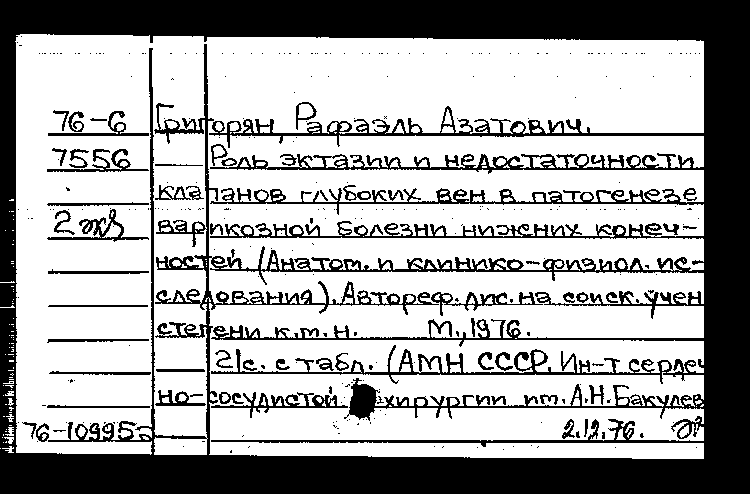 76-6 Григорян, Рафаэль Азатович.
7556 Роль эктазии и недостаточности
клапанов глубоких вен в патогенезе
2 экз варикозной болезни нижних конеч-
ностей (Анатом. и клинико-физиол. ис-
следования). Автореф. дис. на соиск. учен
степени к.м.н. М., 1976.
21с. с табл. (АМН СССР. Ин-т сердеч
но-сосудистой хирургии им. А.Н. Бакулев
76-10995 2.12.76.